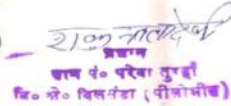 प्रधान
ग्राम पं० परेवा तुरहाँ
वि० क्षे० बिलसंडा (पीलीभीत)